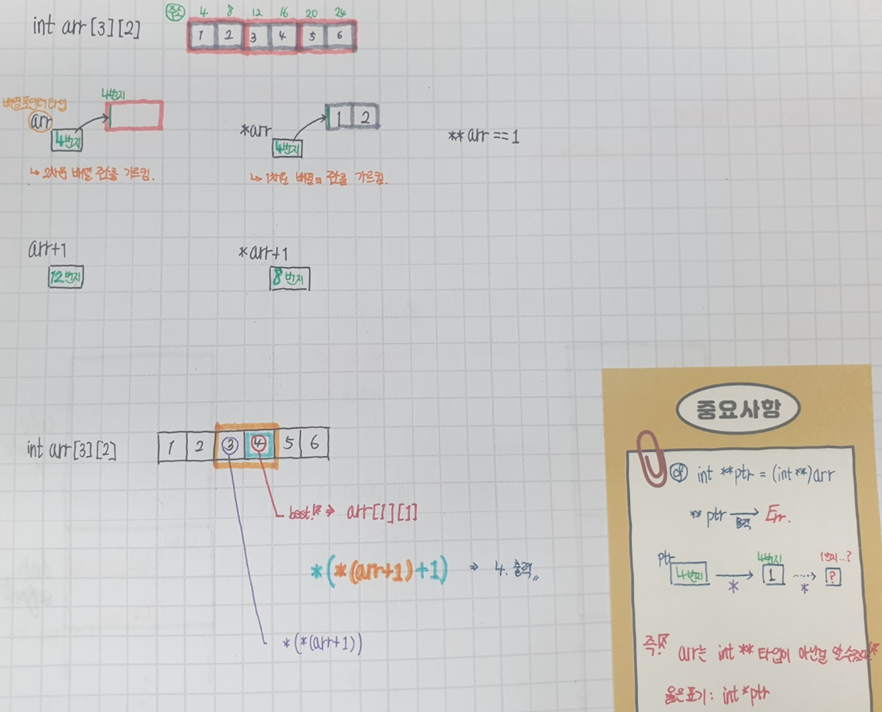 int arr[3][2]
주소 4 8 12 16 20 24
1 2 3 4 5 6
배열포인터 타입
arr
4번지
4번지
↳ 2차원 배열 주소를 가르킴.
*arr
4번지
1 2
↳ 1차원 배열의 주소를 가르킴.
** arr == 1
arr+1
12번지
*arr+1
8번지
int arr[3][2]
1 2 3 4 5 6
best!* ⇒ arr[1][1]
*(*(arr+1)+1) ⇒ 4. 출력
*(*(arr+1))
중요사항
cf int **ptr = (int**)arr
** ptr → Err.
출력
ptr
4번지
*
4번지
1
*
1번지..?
?
즉!* arr는 int ** 타입이 아닌걸 알 수
옳은표기: int *ptr